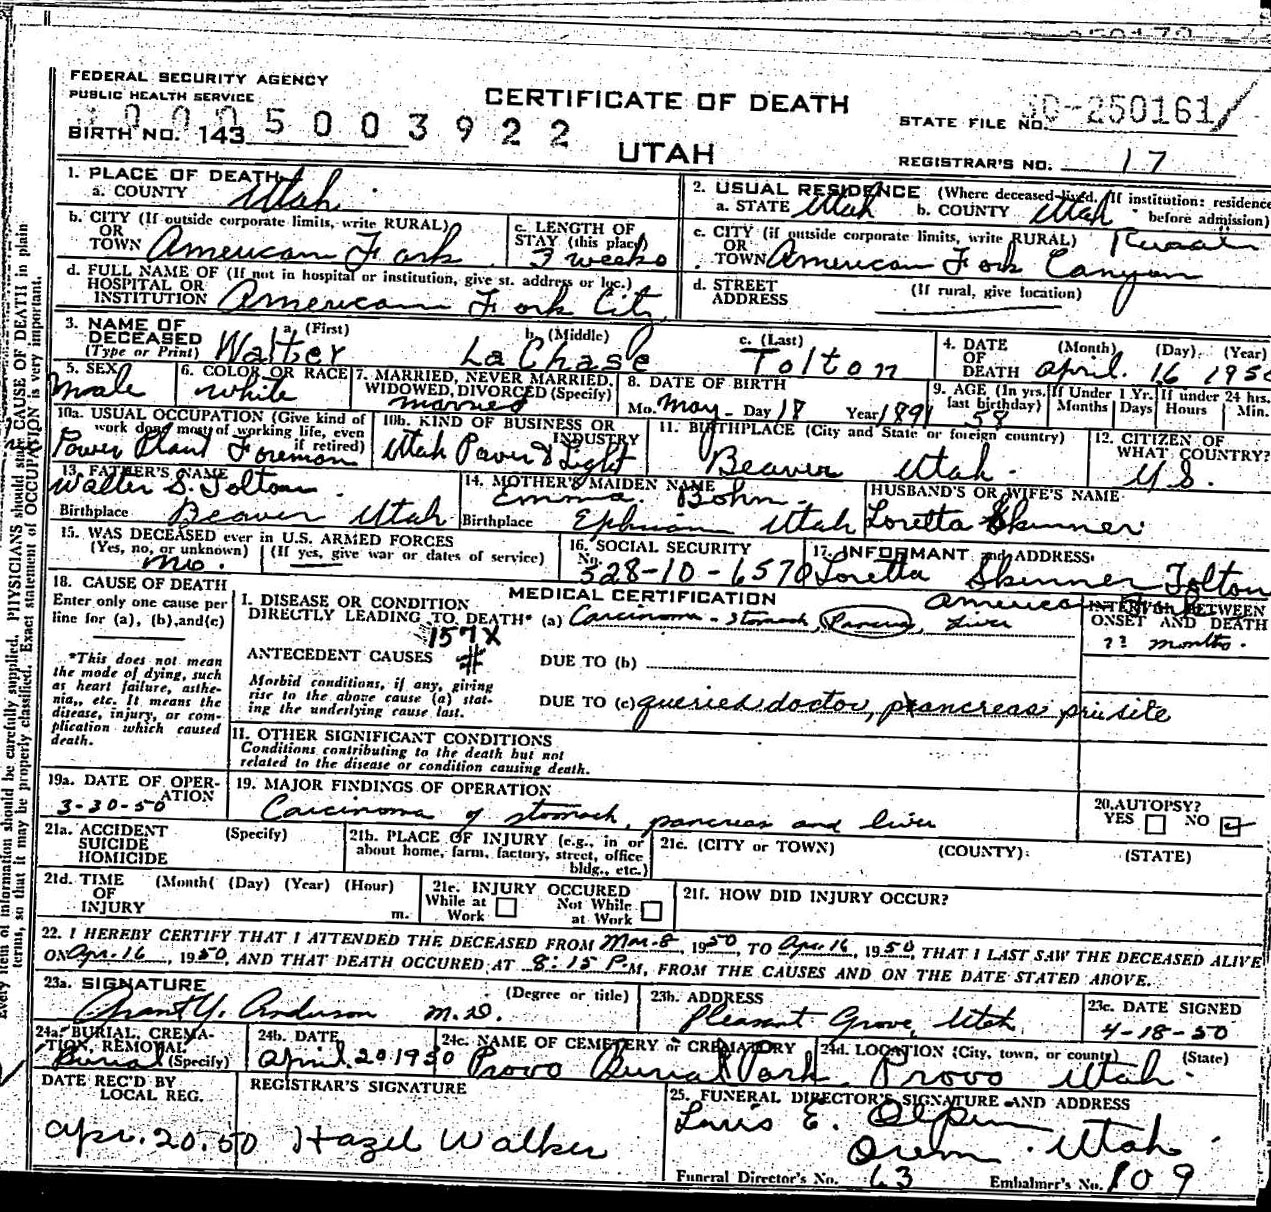 FEDERAL SECURITY AGENCY
PUBLIC HEALTH SERVICE
CERTIFICATE OF DEATH
UTAH
BIRTH NO. 143 5003922
STATE FILE NO. 250161
REGISTRAR'S NO. 17
1. PLACE OF DEATH
a. COUNTY Utah
2. USUAL RESIDENCE (Where deceased lived. If institution: residence before admission)
a. STATE Utah b. COUNTY Utah
b. CITY (If outside corporate limits, write RURAL) OR TOWN American Fork
c. LENGTH OF STAY (this place) 3 weeks
c. CITY (if outside corporate limits, write RURAL) OR TOWN American Fork Canyon Rural
d. FULL NAME OF (If not in hospital or institution, give st. address or loc.) HOSPITAL OR INSTITUTION American Fork City
d. STREET ADDRESS (If rural, give location)
3. NAME OF DECEASED (Type or Print) a. (First) Walter b. (Middle) LaChase c. (Last) Tolton
4. DATE OF DEATH (Month) (Day) (Year) April 16 195
5. SEX male
6. COLOR OR RACE white
7. MARRIED, NEVER MARRIED, WIDOWED, DIVORCED (Specify) married
8. DATE OF BIRTH Mo. May Day 18 Year 1891
9. AGE (In yrs. last birthday) 58 If Under 1 Yr. Months Days If under 24 hrs. Hours Min.
10a. USUAL OCCUPATION (Give kind of work done most of working life, even if retired) Power Plant Foreman
10b. KIND OF BUSINESS OR INDUSTRY Utah Power & Light
11. BIRTHPLACE (City and State or foreign country) Beaver Utah
12. CITIZEN OF WHAT COUNTRY? U.S.
13. FATHER'S NAME Walter S. Tolton
Birthplace Beaver Utah
14. MOTHER'S MAIDEN NAME Emma Bohn
Birthplace Ephriam Utah
HUSBAND'S OR WIFE'S NAME Loretta Skinner
15. WAS DECEASED ever in U.S. ARMED FORCES (Yes, no, or unknown) (If yes, give war or dates of service) no.
16. SOCIAL SECURITY No. 528-10-6570
17. INFORMANT and ADDRESS: Loretta Skinner Tolton
American Fork
MEDICAL CERTIFICATION
18. CAUSE OF DEATH
Enter only one cause per line for (a), (b), and (c)
*This does not mean the mode of dying, such as heart failure, asthenia, etc. It means the disease, injury, or complication which caused death.
I. DISEASE OR CONDITION DIRECTLY LEADING TO DEATH* (a) Carcinoma - stomach, Pancreas, Liver
157X
INTERVAL BETWEEN ONSET AND DEATH
?? months.
ANTECEDENT CAUSES
DUE TO (b)
Morbid conditions, if any, giving rise to the above cause (a) stating the underlying cause last.
DUE TO (c) queried doctor, pancreas pri site
II. OTHER SIGNIFICANT CONDITIONS
Conditions contributing to the death but not related to the disease or condition causing death.
19a. DATE OF OPERATION 3-30-50
19. MAJOR FINDINGS OF OPERATION
Carcinoma of stomach, pancreas and liver
20. AUTOPSY? YES NO
21a. ACCIDENT SUICIDE HOMICIDE (Specify)
21b. PLACE OF INJURY (e.g., in or about home, farm, factory, street, office bldg., etc.)
21c. (CITY or TOWN) (COUNTY) (STATE)
21d. TIME OF INJURY (Month) (Day) (Year) (Hour) m.
21e. INJURY OCCURED While at Work Not While at Work
21f. HOW DID INJURY OCCUR?
22. I HEREBY CERTIFY THAT I ATTENDED THE DECEASED FROM Mar. 8, 1950, TO Apr. 16, 1950, THAT I LAST SAW THE DECEASED ALIVE
ON Apr. 16, 1950, AND THAT DEATH OCCURED AT 8:15 P.M, FROM THE CAUSES AND ON THE DATE STATED ABOVE.
23a. SIGNATURE (Degree or title) Grant Y. Anderson M.D.
23b. ADDRESS Pleasant Grove, Utah
23c. DATE SIGNED 4-18-50
24a. BURIAL, CREMATION, REMOVAL (Specify) Burial
24b. DATE April 20 1950
24c. NAME OF CEMETERY or CREMATORY Provo Burial Park
24d. LOCATION (City, town, or county) (State) Provo Utah
DATE REC'D BY LOCAL REG. Apr. 20. 50
REGISTRAR'S SIGNATURE Hazel Walker
25. FUNERAL DIRECTOR'S SIGNATURE AND ADDRESS
Olpin
Orem Utah
Funeral Director's No. 63 Embalmer's No. 109
Every item of information should be carefully supplied. PHYSICIANS should state CAUSE OF DEATH in plain
terms, so that it may be properly classified. Exact statement of OCCUPATION is very important.